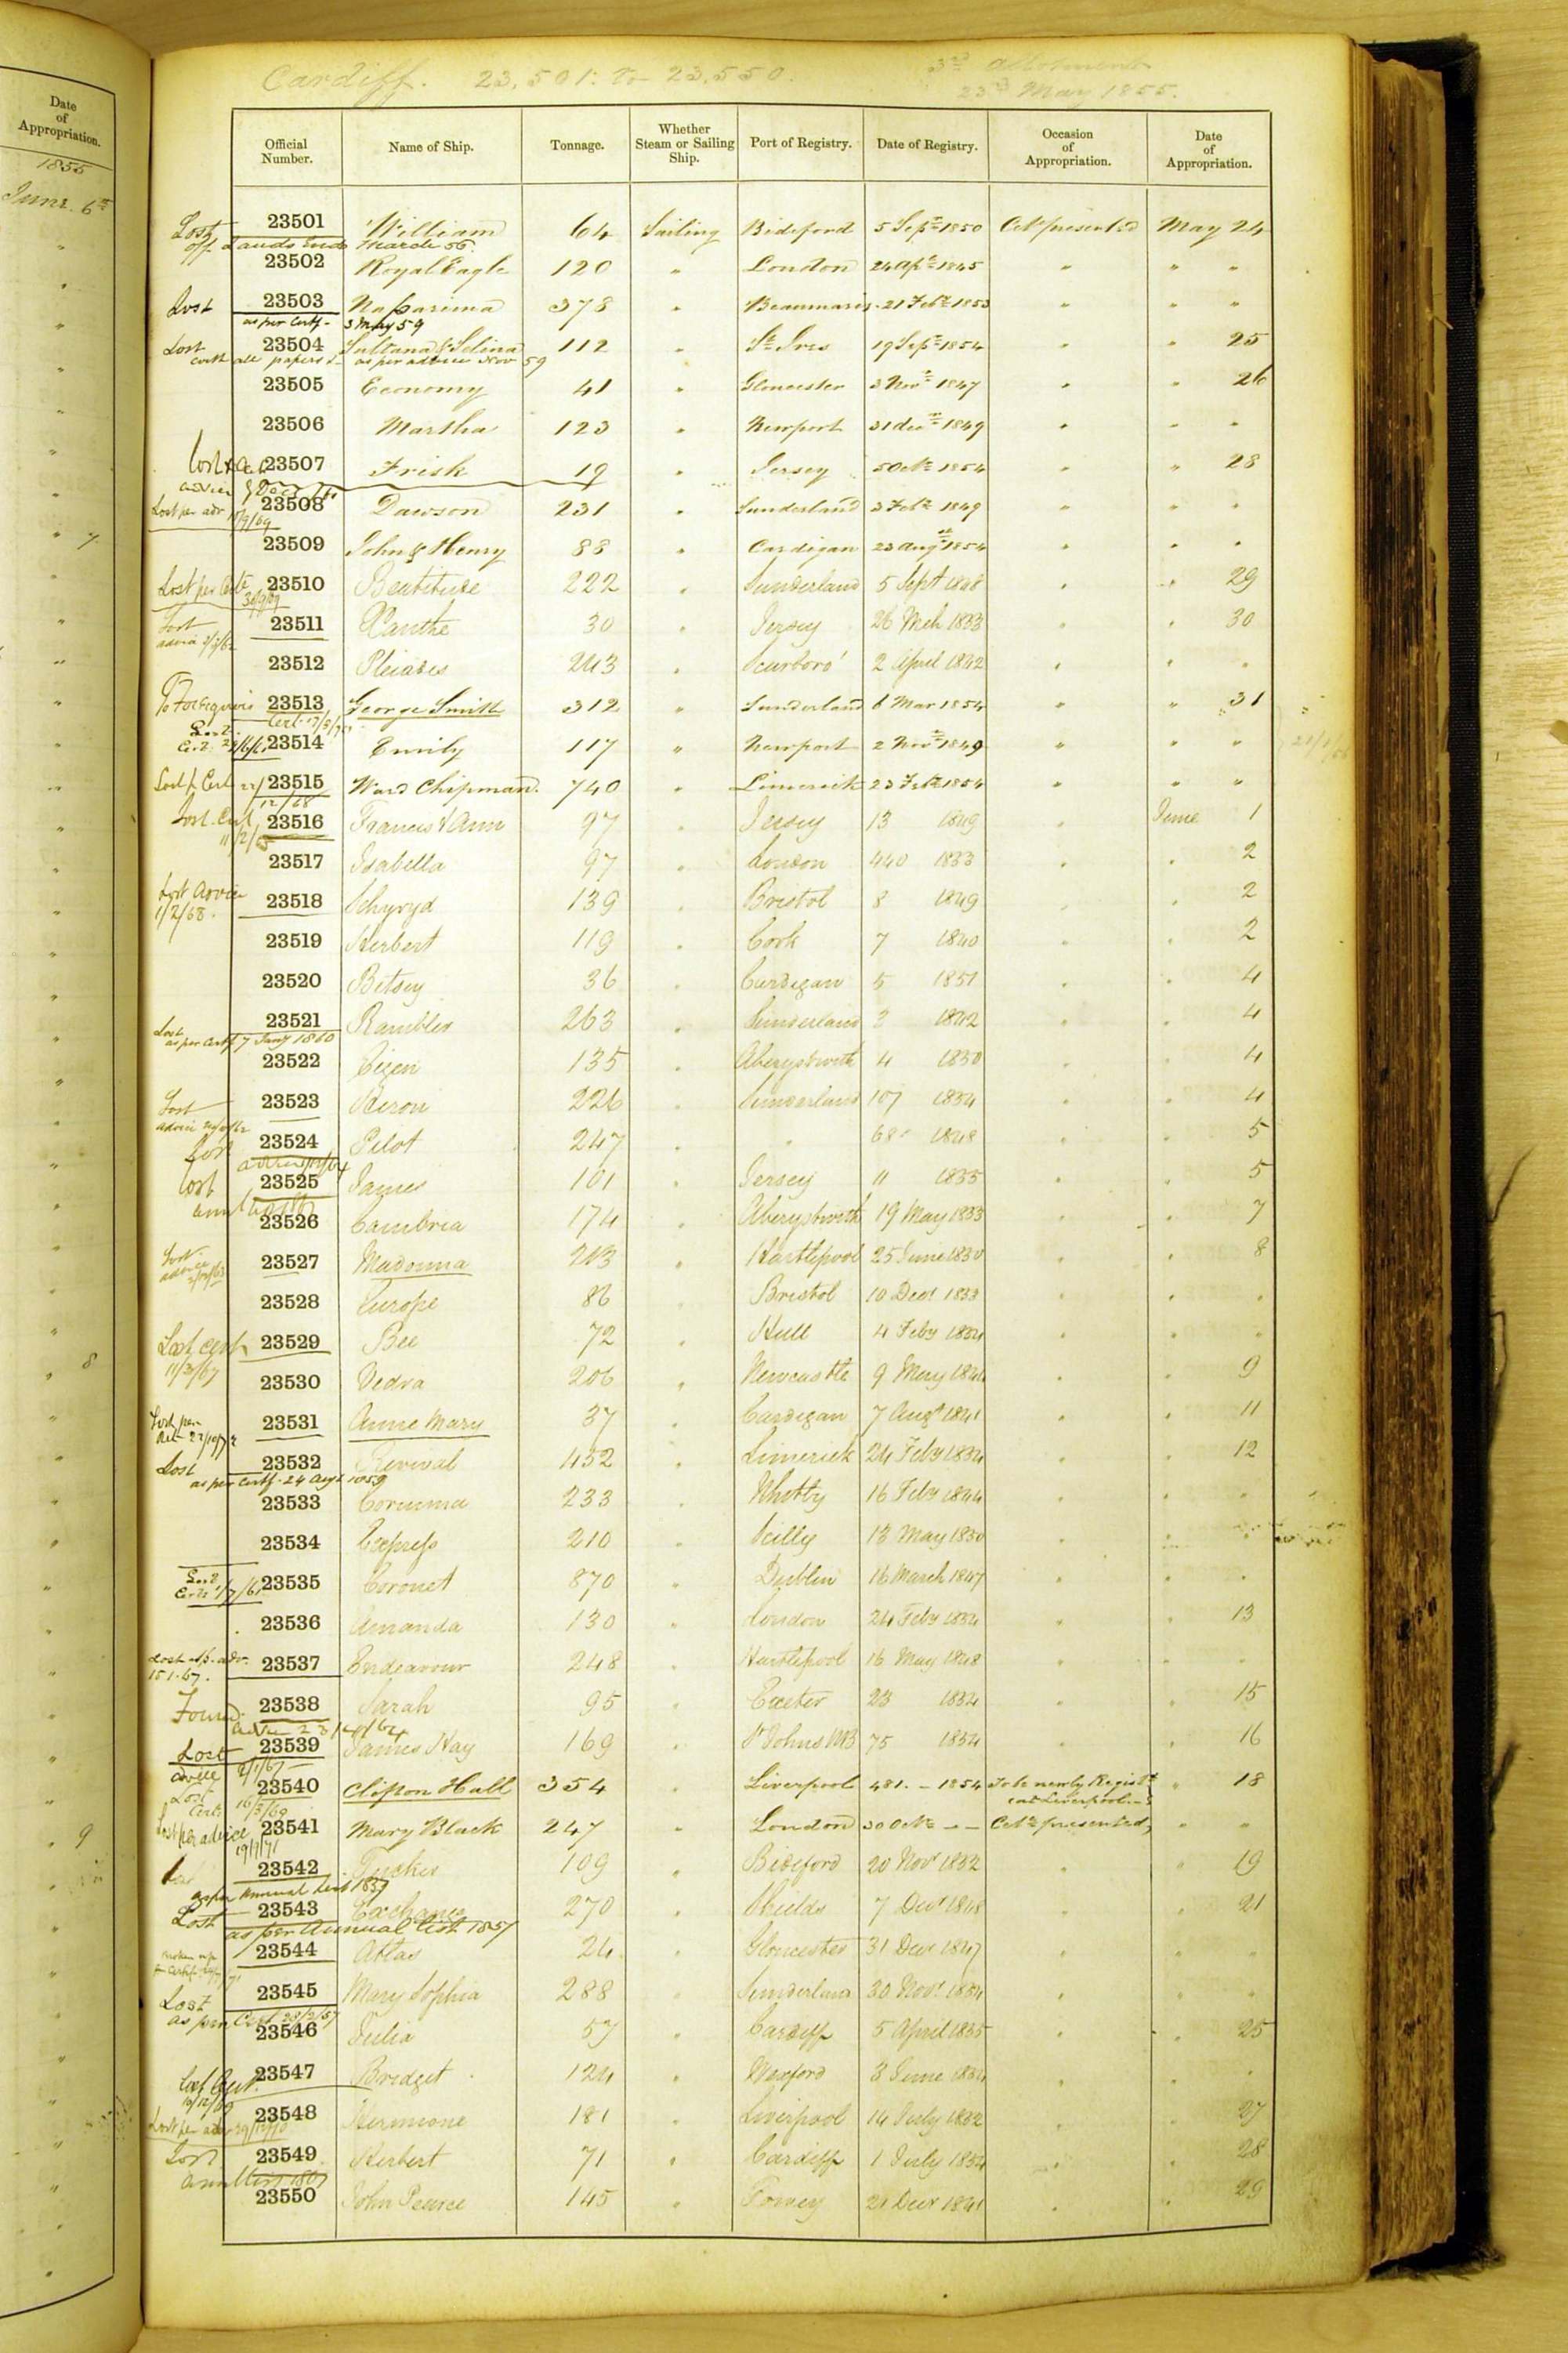 Date
of
Appropriation.
1855
June 6th
7
8
9
Cardiff. 23,501: to 23,550.
3rd Allotment
23rd May 1855.
Official Number. Name of Ship. Tonnage. Whether Steam or Sailing Ship. Port of Registry. Date of Registry. Occasion of Appropriation. Date of Appropriation.
Lost 23501 William 64 Sailing Bideford 5 Sepr 1850 Cert presented May 24
off Lands End March 56.
23502 Royal Eagle 120 " London 24 Apl 1845 " " "
Lost 23503 Naparima 378 " Beaumaris 21 Feby 1853 " " "
as per Certf- 3 May 59
Lost 23504 Sultana & Selina 112 " St Ives 19 Sepr 1854 " " 25
with all papers as per advice Nov 59
23505 Economy 41 " Gloucester 3 Novr 1847 " " 26
23506 Martha 123 " Newport 31 decr 1849 " " "
Lost 23507 Frisk 19 " Jersey 5 Octr 1854 " " 28
advice
Lost per adv 23508 Dawson 231 " Sunderland 3 Feby 1849 " " "
/9/69
23509 John & Henry 88 " Cardigan 23 Augt 1854 " " "
Lost per Certe 23510 Beatitude 222 " Sunderland 5 Sept 1848 " " 29
Lost 23511 Xanthe 30 " Jersey 26 Mch 1853 " " 30
advice
23512 Pleiades 243 " Scarboro' 2 April 1842 " " "
To Foreigners 23513 George Smith 312 " Sunderland 6 Mar 1854 " " 31
Cert.
Lost Cert. 23514 Emily 117 " Newport 2 Novr 1849 " " "
Lost p Cert 22/ 23515 Ward Chipman. 740 " Limerick 23 Feby 1854 " " "
12/68
Lost. Cert 23516 Francis & Ann 97 " Jersey 13 1849 " June 1
11/2/65
23517 Isabella 97 " London 440 1853 " " 2
Lost advice 23518 139 " Bristol 8 1849 " " 2
1/2/68.
23519 Herbert 119 " Cork 7 1840 " " 2
23520 Betsey 36 " Cardigan 5 1851 " " 4
23521 Rambler 263 " Sunderland 3 1842 " " 4
Lost as per Certf 7 Jany 1860
23522 Eigen 135 " Aberystwith 4 1850 " " 4
Lost 23523 Heron 226 " Sunderland 107 1854 " " 4
advice
Lost 23524 Pilot 247 " " 68 1848 " " 5
advice
Lost 23525 James 101 " Jersey 11 1835 " " 5
annl list
23526 Cambria 174 " Aberystwith 19 May 1853 " " 7
Lost 23527 Madonna 213 " Hartlepool 25 June 1850 " " 8
advice
23528 Europe 86 " Bristol 10 Decr 1853 " " "
Lost Cert. 23529 Bee 72 " Hull 4 Feby 1854 " " "
11/3/67
23530 Vedra 206 " Newcastle 9 May 1844 " " 9
Lost per 23531 Anne Mary 37 " Cardigan 7 Augt 1841 " " 11
Lost 23532 Revival 452 " Limerick 24 Feby 1854 " " 12
as per Certf. 24 Augt 1859
23533 Corumna 233 " Whitby 16 Feby 1844 " " "
23534 Express 210 " Scilly 13 May 1850 " " "
Lost Certe 1/7/61 23535 Coronet 870 " Dublin 16 March 1847 " " "
23536 Amanda 130 " London 24 Feby 1854 " " 13
Lost p. adv. 23537 Endeavour 248 " Hartlepool 16 May 1848 " " "
15.1.67.
23538 Sarah 95 " Exeter 23 1854 " " 15
advice
Lost 23539 James Hay 169 " St Johns NB 75 1854 " " 16
advice
Lost 23540 Clifton Hall 354 " Liverpool 481. - 1854 To be newly Registd " 18
Certe 16/3/69 (at Liverpool.-)
Lost per advice 23541 Mary Black 247 " London 30 Octr - - Certe presented, " "
19/7/71
23542 Tucker 109 " Bideford 20 Novr 1852 " " 19
as per annual list 1857
Lost 23543 Exchange 270 " Shields 7 Decr 1848 " " 21
as per Annual list 1857
Broken up 23544 Atlas 24 " Gloucester 31 Decr 1847 " " "
Lost 23545 Mary Sophia 288 " Sunderland 30 Novr 1854 " " "
as per Cert 23/2/57
23546 Julia 57 " Cardiff 5 April 1855 " " 25
Lost Cert. 23547 Bridget 124 " Wexford 3 June 1854 " " "
Lost per adv 23548 Hermione 181 " Liverpool 14 July 1852 " " 27
Lost 23549 Herbert 71 " Cardiff 1 July 1854 " " 28
Annl list
23550 John Pearce 145 " Fowey 21 Decr 1841 " " 29